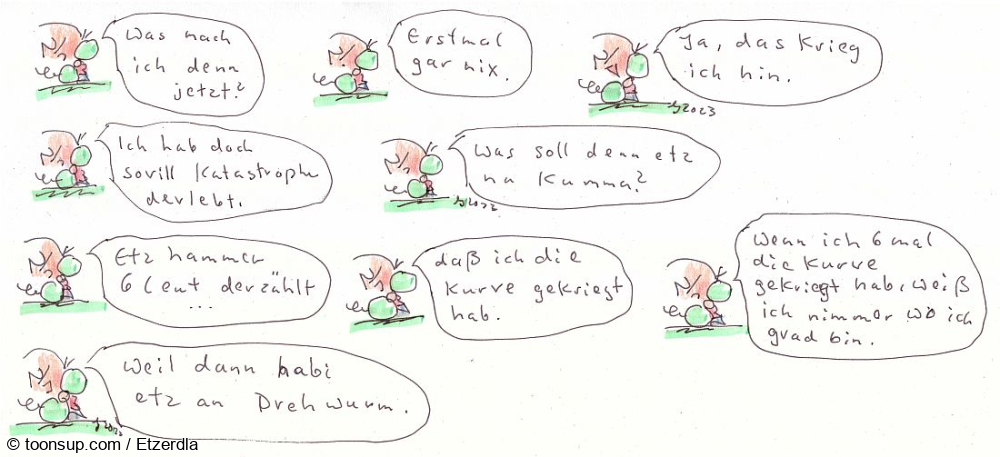 Was mach
ich denn
jetzt?
Erstmal
gar nix.
Ja, das krieg
ich hin.
2023
Ich hab doch
sovill Katastrophn
derlebt.
Was soll denn etz
na kumma?
2023
Etz hammer
6 Leut derzählt
...
daß ich die
Kurve gekriegt
hab.
Wenn ich 6 mal
die Kurve
gekriegt hab, weiß
ich nimmer wo ich
grad bin.
Weil dann habi
etz an Drehwurm.
© toonsup.com / Etzerdla